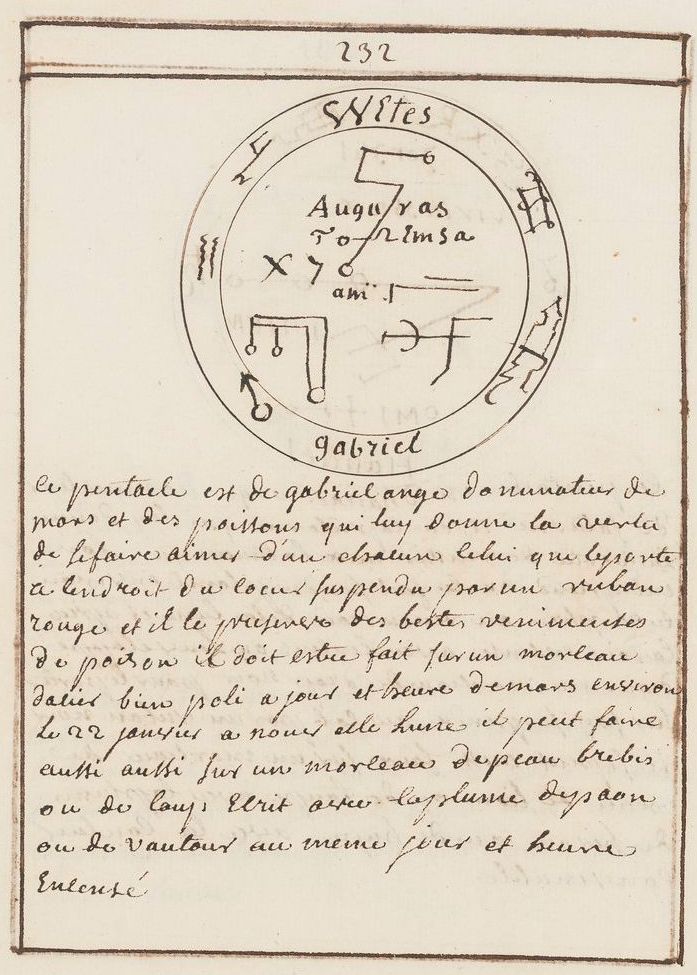 232
Wltes
Augu ras
To 2Emsa
X 7
ani
gabriel
Ce pentacle est de gabriel ange dominateur de
mars et des poissons qui luy donne la vertu
de se faire aimer d'un chacun celui qui le porte
a lendroit du coeur suspendu par un ruban
rouge et il le preserve des bestes venimeuses
de poison il doit estre fait sur un morceau
dacier bien poli a jour et heure de mars environ
le 22 janvier a nouvelle lune il peut faire
aussi aussi sur un morceau de peau brebis
ou de loup Ecrit avec la plume de paon
ou de vautour au meme jour et heure
Encensé